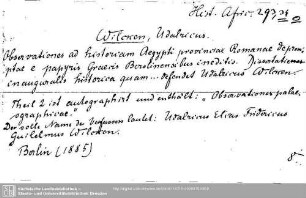 Hist. Afric. 293
Wilcken, Udalricus.
Observationes ad historiam Aegypti provinciae Romanae depromptae
e papyris Graecis Berolinensibus ineditis. Dissertatio
inauguralis historica quam ... defendet Udalricus Wilcken.
Theil 2 ist autographirt und enthält: Observationes palaeographicae.
Der volle Name des Verfassers lautet: Udalricus Fridericus
Guilelmus Wilcken.
Berlin (1885)
8°